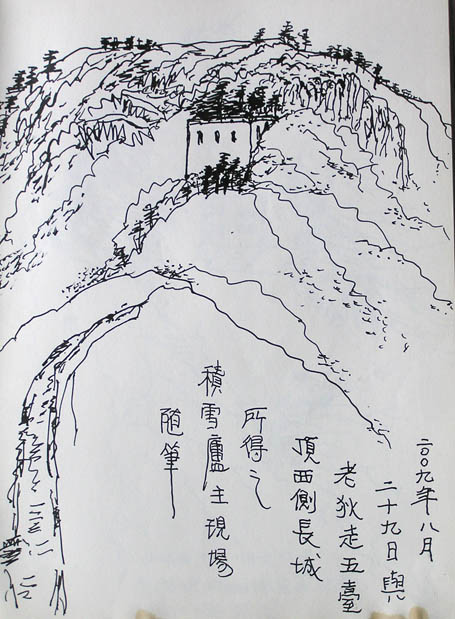 二00九年八月
二十九日與
老狄走五臺
頂西側長城
所得之
積雪廬主現場
隨筆